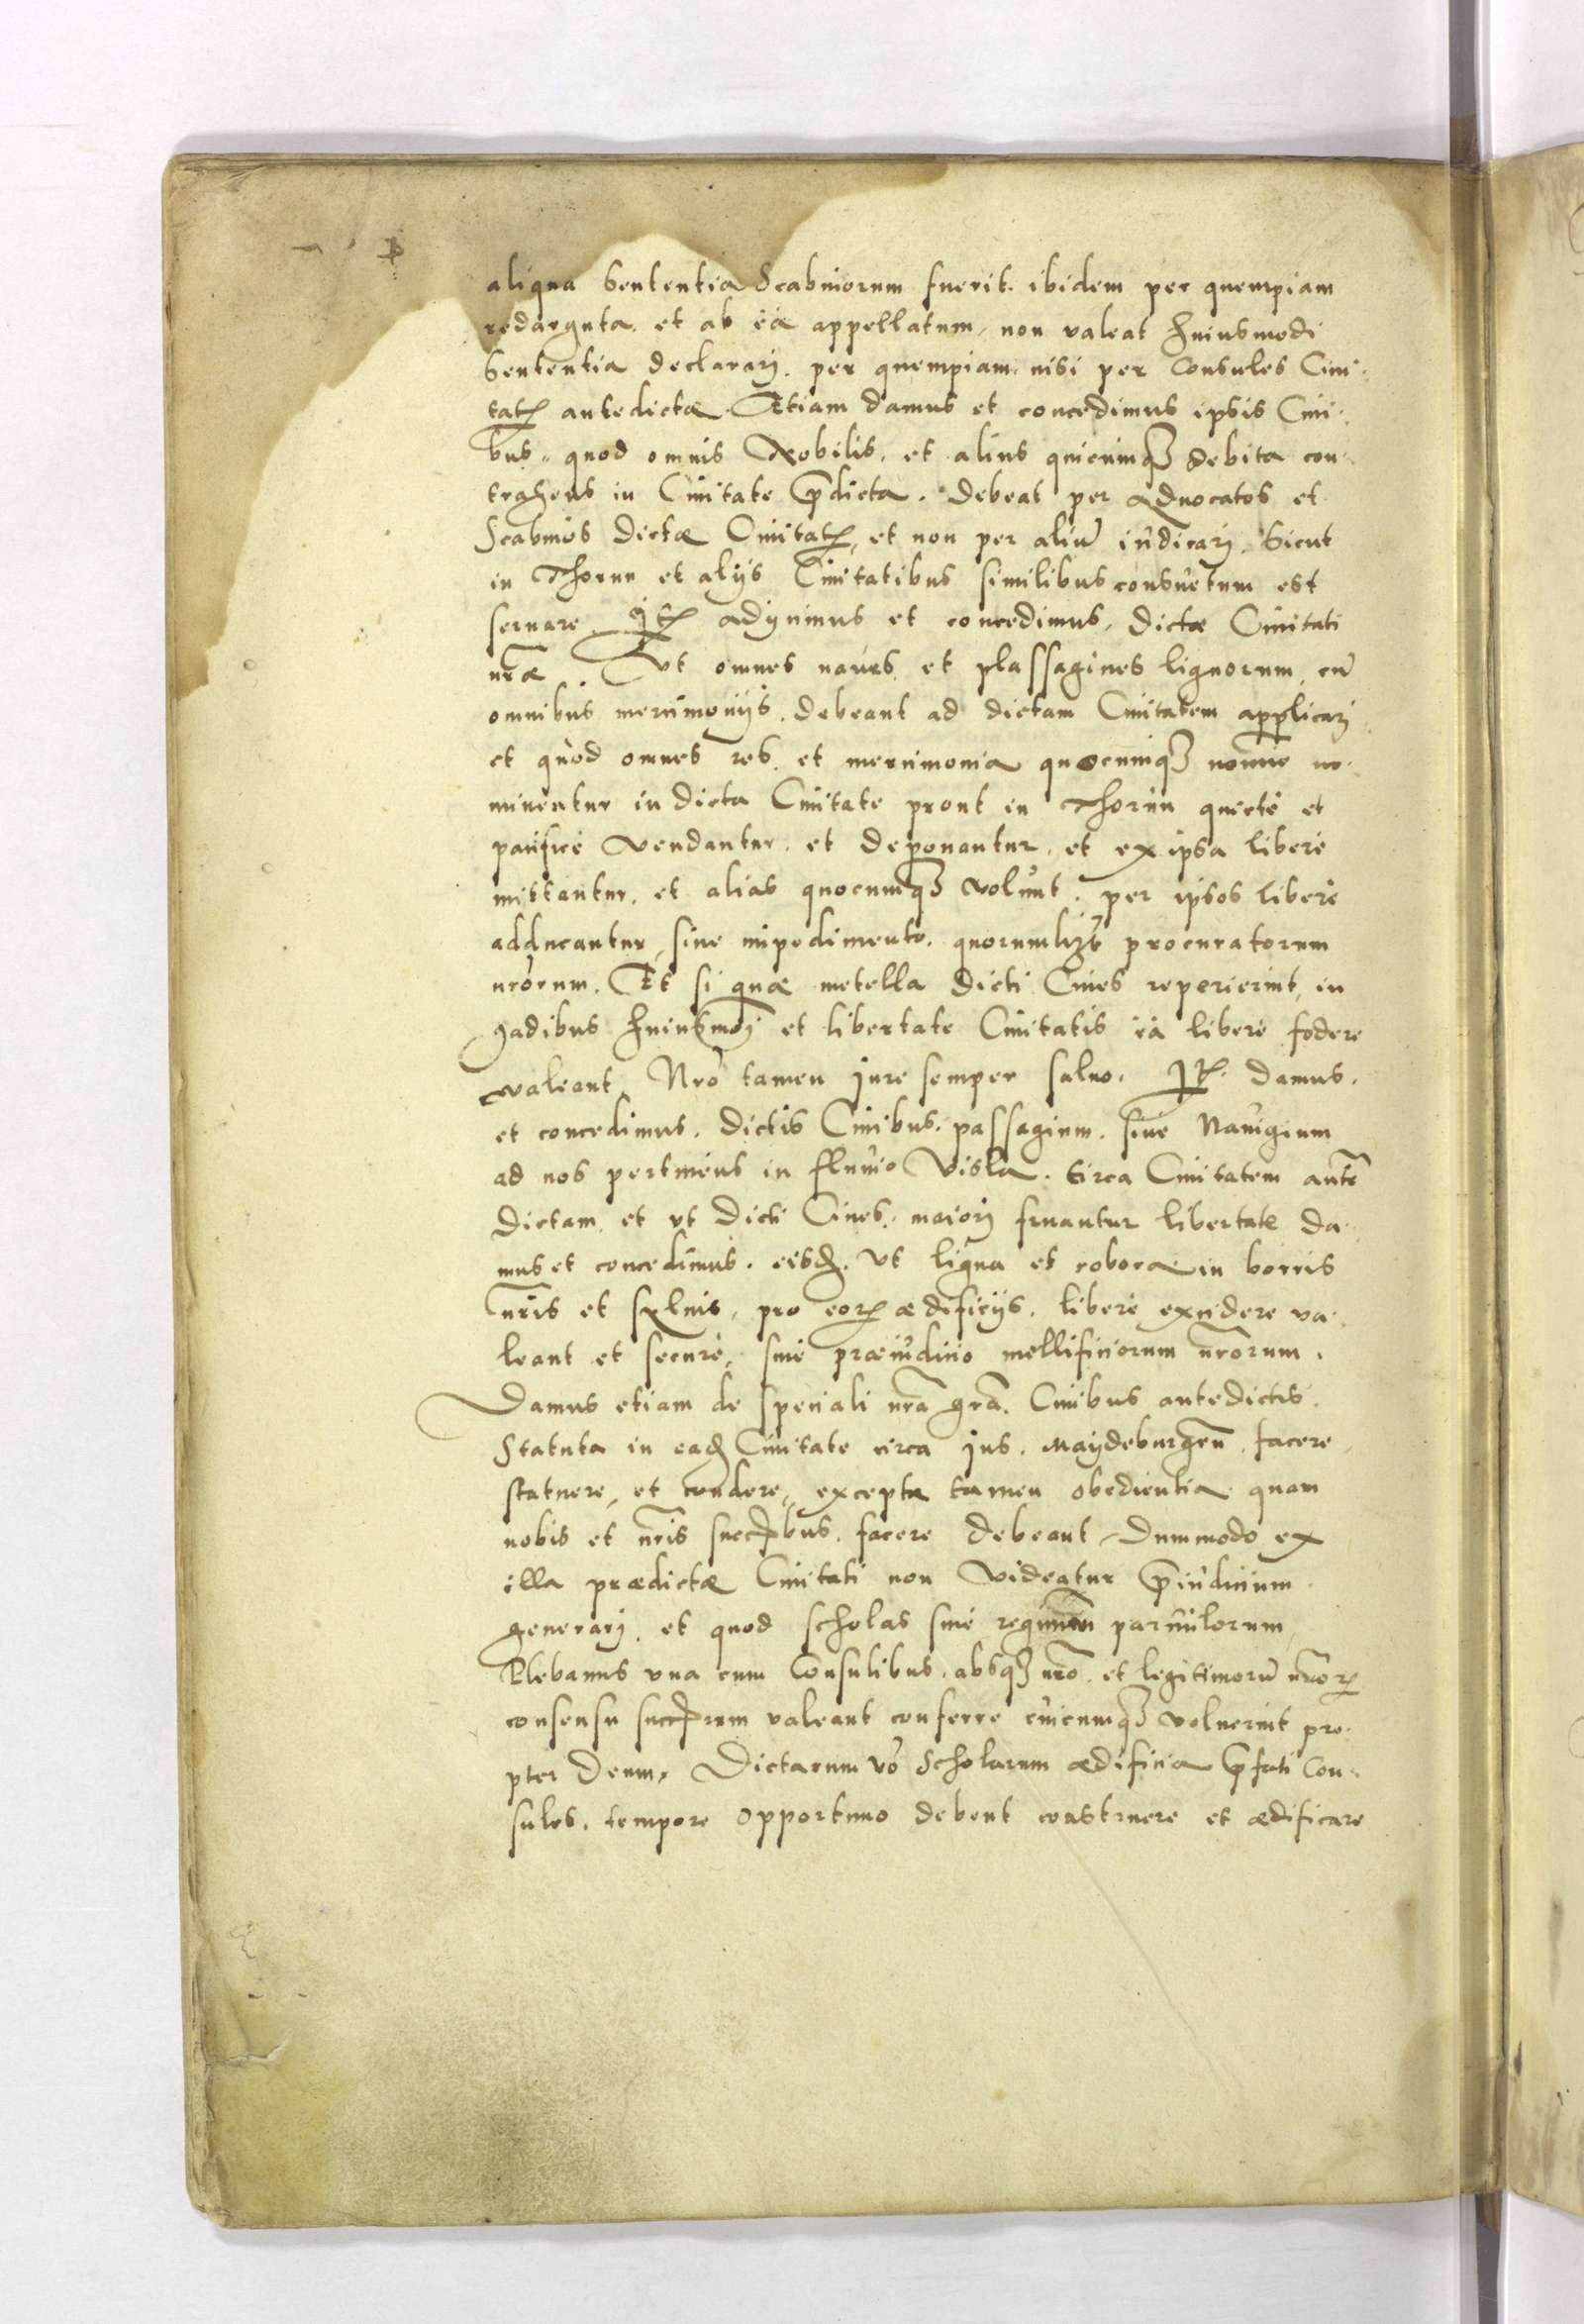 aliqua Sententia Scabinorum fuerit. ibidem per quempiam
redarguta. et ab ea appellatum, non valeat huiusmodi
Sententia declarari. per quempiam. nisi per Consules Ciui-
tatꝭ antedictæ. Etiam damus et concedimus ipsis Ciui-
bus. quod omnis Nobilis. et alius quicunqꝫ debita con-
trahens in Ciuitate p̄dicta. debeat per aduocatos et
Scabinos dictæ Ciuitatꝭ, et non per aliū iudicari. Sicut
in Thorun et alijs Ciuitatibus similibus consuetum est
seruare. Itꝫ adijcimus et concedimus, dictæ Ciuitati
nr̄æ. Vt omnes naues et plassagines lignorum, cū
omnibus mercimonijs. debeant ad dictam Ciuitatem applicari
et quod omnes res. et mercimonia quocunqꝫ nomīe no-
minentur in dicta Ciuitate prout in Thorun quiete et
pacifice vendantur. et deponantur. et ex ipsa libere
mittantur. et alias quocumqꝫ volunt. per ipsos libere
adducantur, sine impedimento. quorumlibꝫ procuratorum
nr̄orum. Et si quæ metella dicti Ciues reperierint, in
gadibus huiusmoī et libertate Ciuitatis ea libere fodere
valeant, Nr̄o tamen jure semper saluo. Itꝫ. damus.
et concedimus. dictis Ciuibus. passagium. siue Nauigium
ad nos pertinens in fluuio Visla. circa Ciuitatem antē
dictam, et vt dicti Ciues. maiori fruantur libertate da-
mus et concedimus. eisdꝫ. Vt ligna et robora in borris
nr̄is et syluis, pro eorꝝ ædificijs. libere excidere va-
leant et secure, sine præiudicio mellificiorum nr̄orum.
Damus etiam de speciali nr̄a gr̄a. Ciuibus antedictis.
Statuta in eadꝫ Ciuitate circa jus. Maydeburgen̄. facere
statuere, et condere, excepta tamen obedientia quam
nobis et nr̄is succꝑbus. facere debeant, Dummodo ex
illa prædictæ Ciuitati non videatur p̄iudicium.
generari. et quod scholas siue regimen paruulorum,
Plebanus vna cum Consulibus. absqꝫ nr̄o. et legitimorū nr̄orꝝ
consensu succꝑrum valeant conferre cuicumqꝫ voluerint pro-
pter Deum, Dictarum vō Scholarum ædificia p̄fati Con-
sules. tempore opportuno debent construere et ædificare